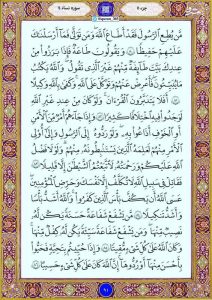 جزء ٥
سوره نساء ٤
مَّن يُطِعِ الرَّسُولَ فَقَدْ أَطَاعَ اللَّهَ وَمَن تَوَلَّىٰ فَمَا أَرْسَلْنَاكَ
عَلَيْهِمْ حَفِيظًا ٨٠ وَيَقُولُونَ طَاعَةٌ فَإِذَا بَرَزُوا مِنْ
عِندِكَ بَيَّتَ طَائِفَةٌ مِّنْهُمْ غَيْرَ الَّذِي تَقُولُ وَاللَّهُ يَكْتُبُ
مَا يُبَيِّتُونَ فَأَعْرِضْ عَنْهُمْ وَتَوَكَّلْ عَلَى اللَّهِ وَكَفَىٰ بِاللَّهِ وَكِيلًا
٨١ أَفَلَا يَتَدَبَّرُونَ الْقُرْآنَ وَلَوْ كَانَ مِنْ عِندِ غَيْرِ اللَّهِ
لَوَجَدُوا فِيهِ اخْتِلَافًا كَثِيرًا ٨٢ وَإِذَا جَاءَهُمْ أَمْرٌ مِّنَ الْأَمْنِ
أَوِ الْخَوْفِ أَذَاعُوا بِهِ وَلَوْ رَدُّوهُ إِلَى الرَّسُولِ وَإِلَىٰ أُولِي
الْأَمْرِ مِنْهُمْ لَعَلِمَهُ الَّذِينَ يَسْتَنبِطُونَهُ مِنْهُمْ وَلَوْلَا فَضْلُ
اللَّهِ عَلَيْكُمْ وَرَحْمَتُهُ لَاتَّبَعْتُمُ الشَّيْطَانَ إِلَّا قَلِيلًا ٨٣
فَقَاتِلْ فِي سَبِيلِ اللَّهِ لَا تُكَلَّفُ إِلَّا نَفْسَكَ وَحَرِّضِ الْمُؤْمِنِينَ
عَسَى اللَّهُ أَن يَكُفَّ بَأْسَ الَّذِينَ كَفَرُوا وَاللَّهُ أَشَدُّ بَأْسًا
وَأَشَدُّ تَنكِيلًا ٨٤ مَّن يَشْفَعْ شَفَاعَةً حَسَنَةً يَكُن لَّهُ
نَصِيبٌ مِّنْهَا وَمَن يَشْفَعْ شَفَاعَةً سَيِّئَةً يَكُن لَّهُ كِفْلٌ مِّنْهَا
وَكَانَ اللَّهُ عَلَىٰ كُلِّ شَيْءٍ مُّقِيتًا ٨٥ وَإِذَا حُيِّيتُم بِتَحِيَّةٍ فَحَيُّوا
بِأَحْسَنَ مِنْهَا أَوْ رُدُّوهَا إِنَّ اللَّهَ كَانَ عَلَىٰ كُلِّ شَيْءٍ حَسِيبًا ٨٦
٩١